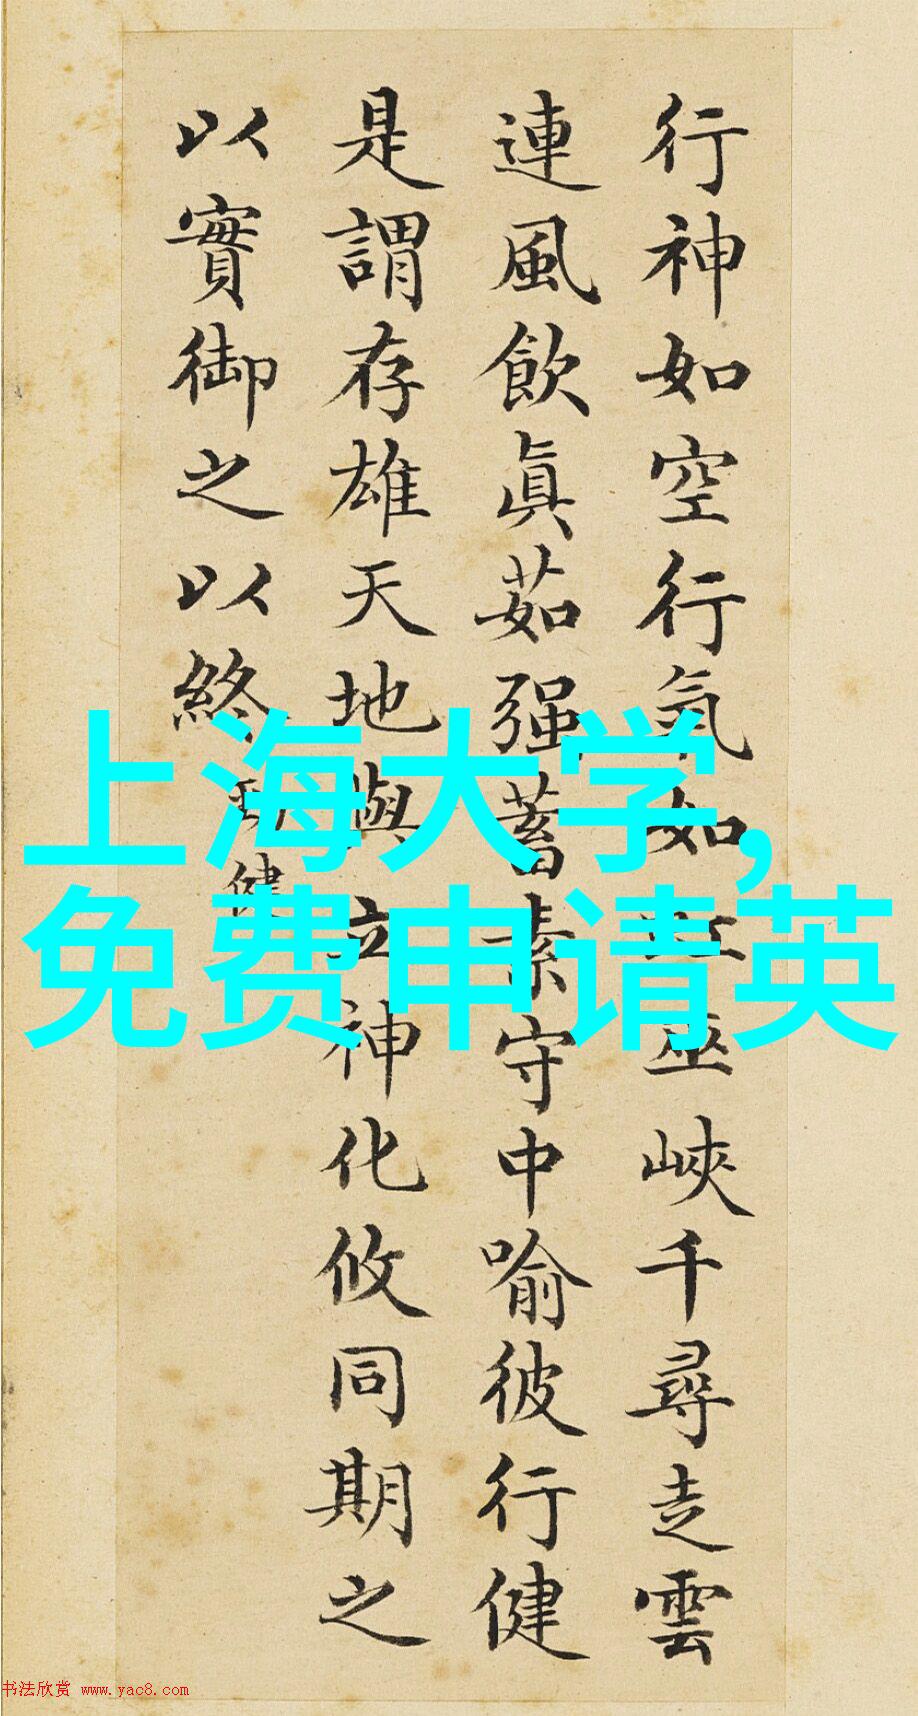 行神如空行氣如虹巫峽千尋走雲
連風飲眞茹强蓄素守中喻彼行健
是謂存雄天地與立神化攸同期之
以實御之以終
勁健
上海大学,
免费申请英
书法欣赏 www.yac8.com